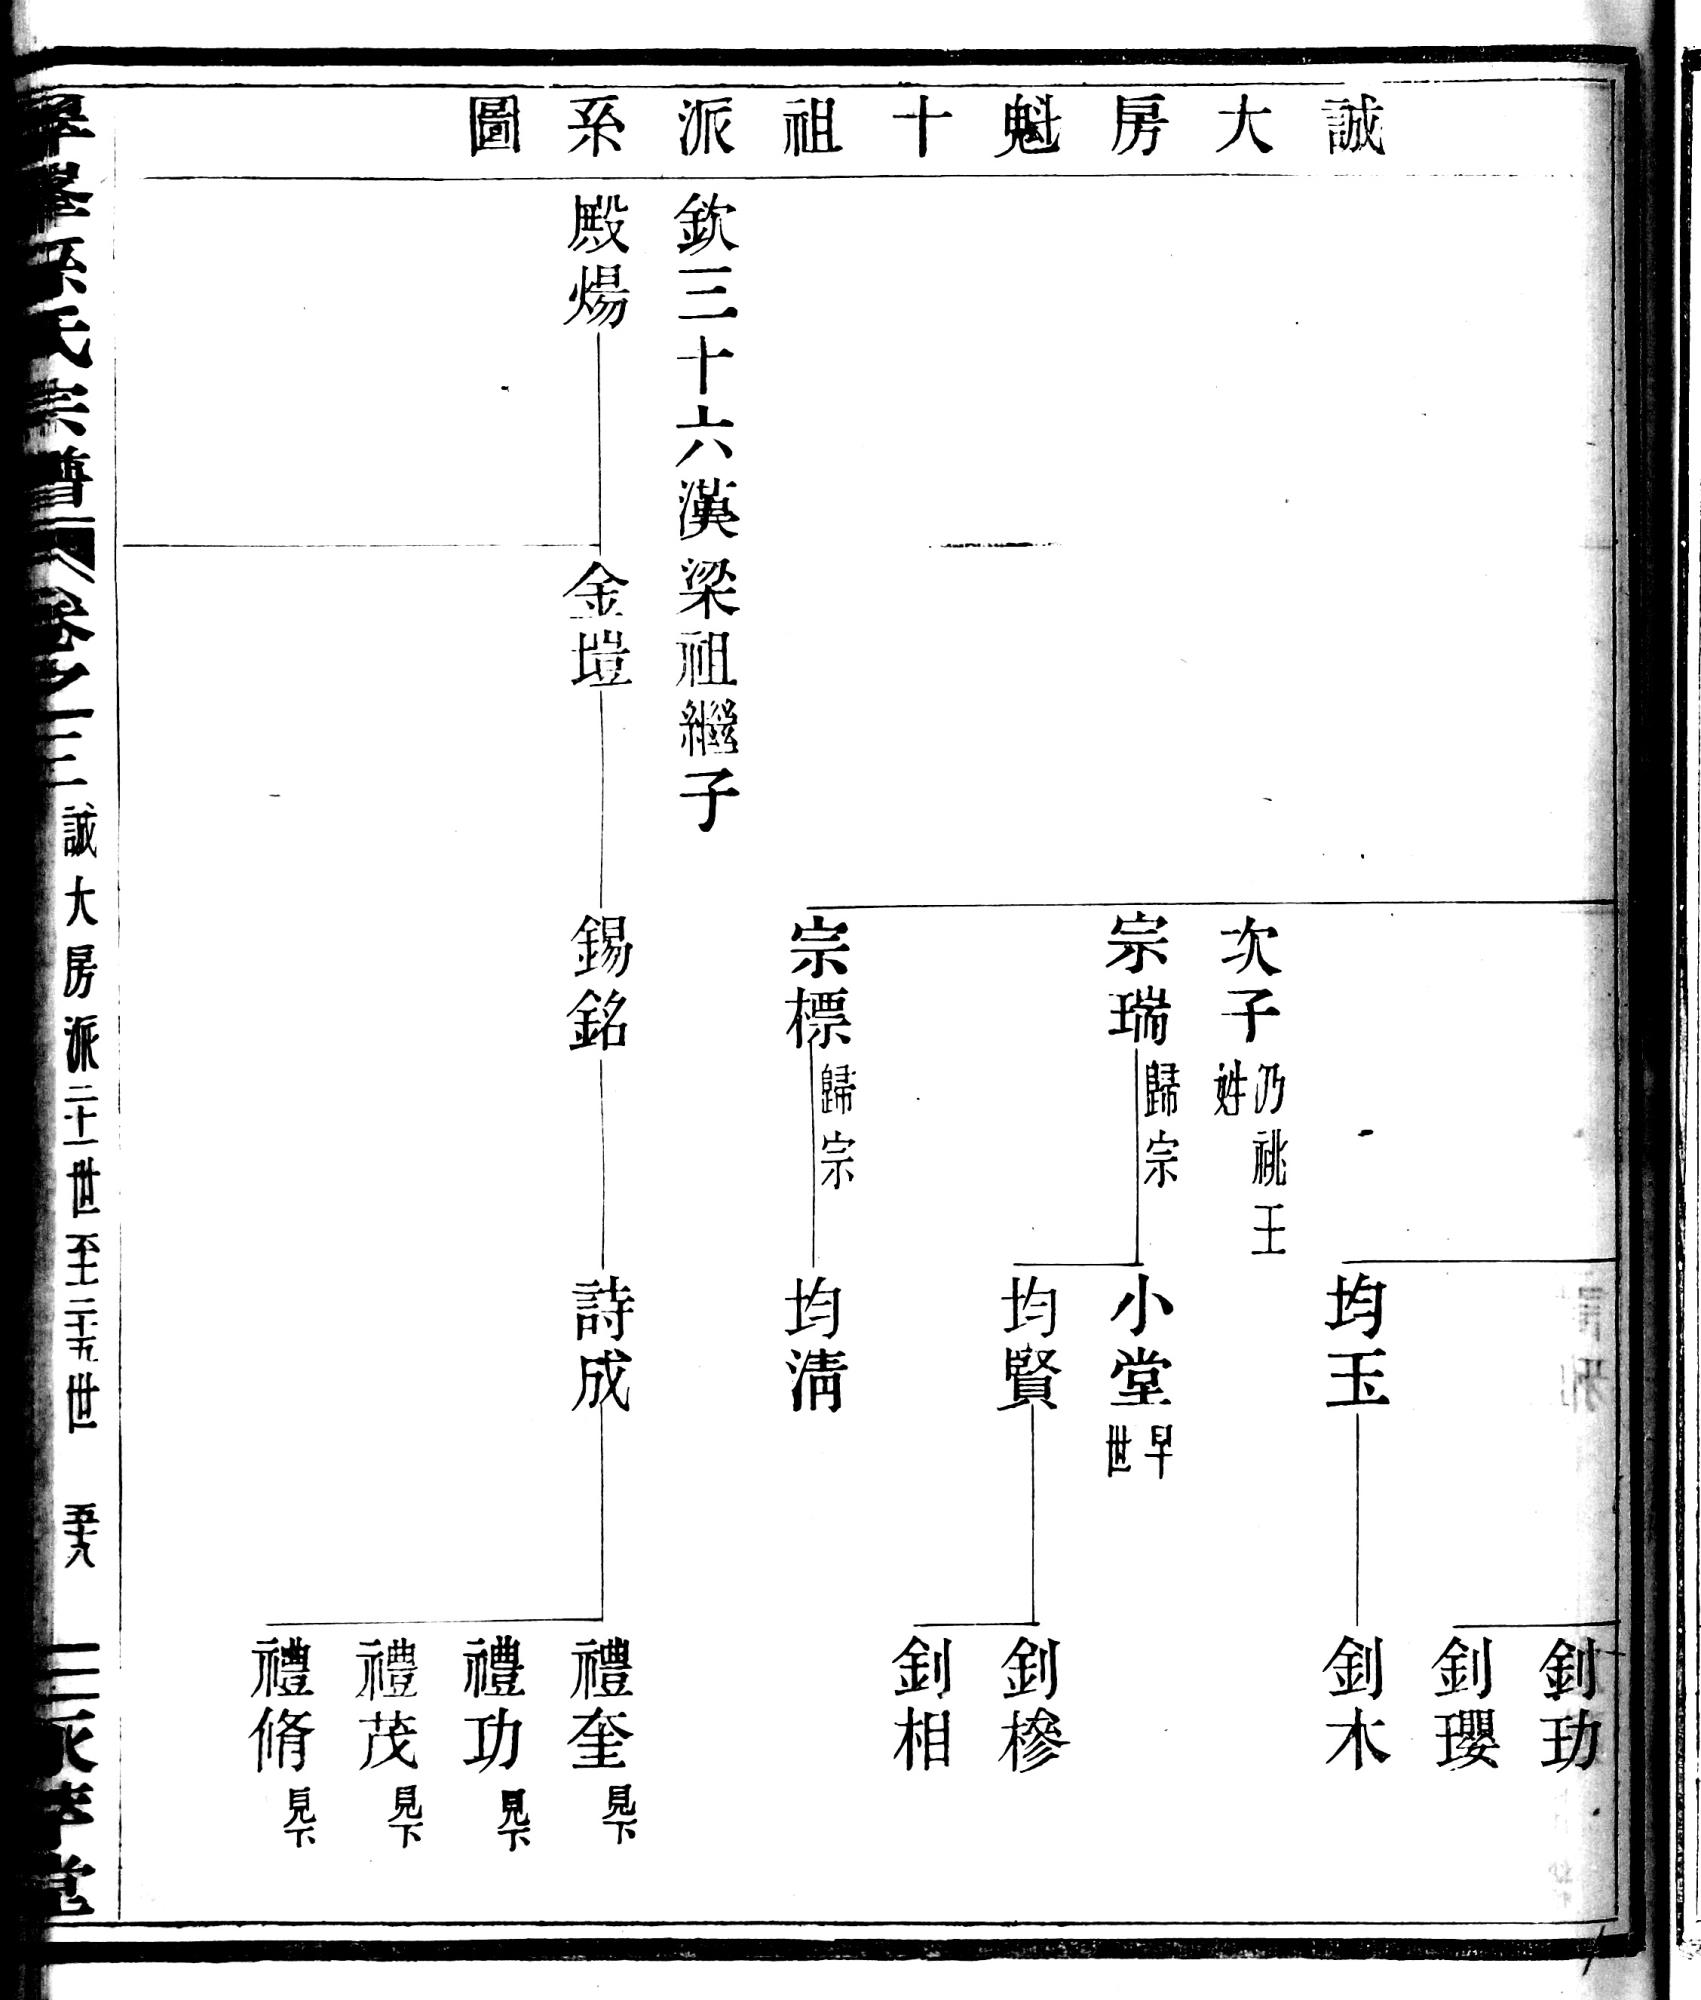 誠大房魁十祖派系圖
釗玏
釗瓔
均玉
釗木
次子
乃祧王
姓
宗瑞
歸宗
小堂
早
世
均賢
釗槮
釗相
宗標
歸宗
均淸
欽三十六漢梁祖繼子
殿煬
金塏
錫銘
詩成
禮奎 見下
禮功 見下
禮茂 見下
禮脩 見下
孫氏宗譜
卷之三
誠大房派二十一世至二十五世
五十九
堂